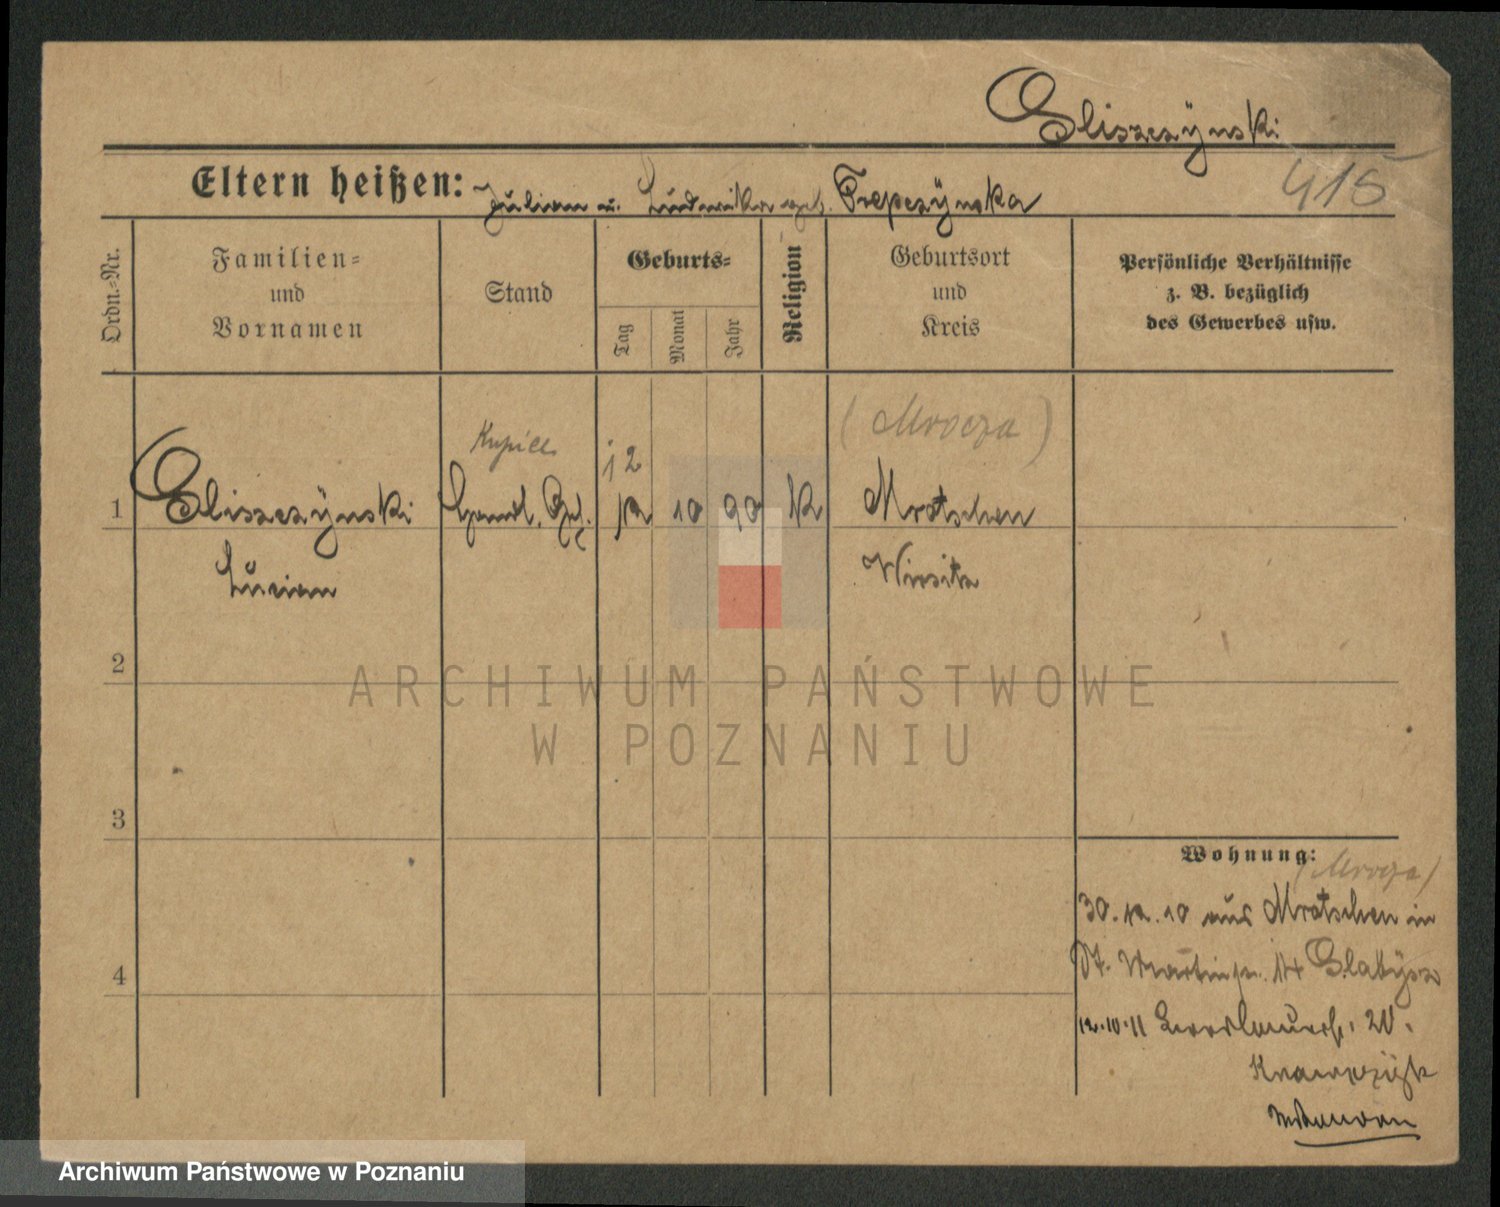 Gliszczÿnski
415
Eltern heißen: Julian u. Ludwika geb. Trepczÿnska
Ordn.-Nr.
Familien-
und
Vornamen
Stand
Geburts-
Tag
Monat
Jahr
Religion
Geburtsort
und
Kreis
Persönliche Verhältnisse
z. B. bezüglich
des Gewerbes usw.
Kupiec
12
(Mrocza)
1 Gliszczÿnski Handl. Geh. 12 10 90 K Mrotschen
Lucian Wirsitz
2
3
4
Wohnung:
(Mrocza)
30.12.10 aus Mrotschen in
St. Martinstr. 14
12.10.11 20.
ARCHIWUM PAŃSTWOWE
W POZNANIU
Archiwum Państwowe w Poznaniu